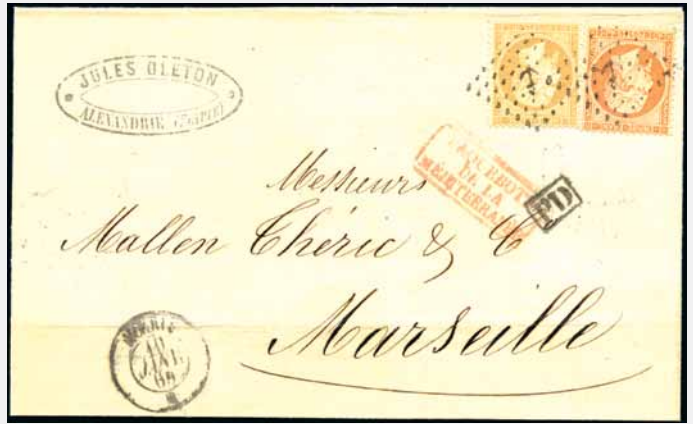 JULES OLETON
ALEXANDRIE (EGYPTE)
PAQUEBOTS
DE LA
MÉDITERRANÉE
PD
Messieurs
Mallen Théric & C
Marseille
10
JANV.